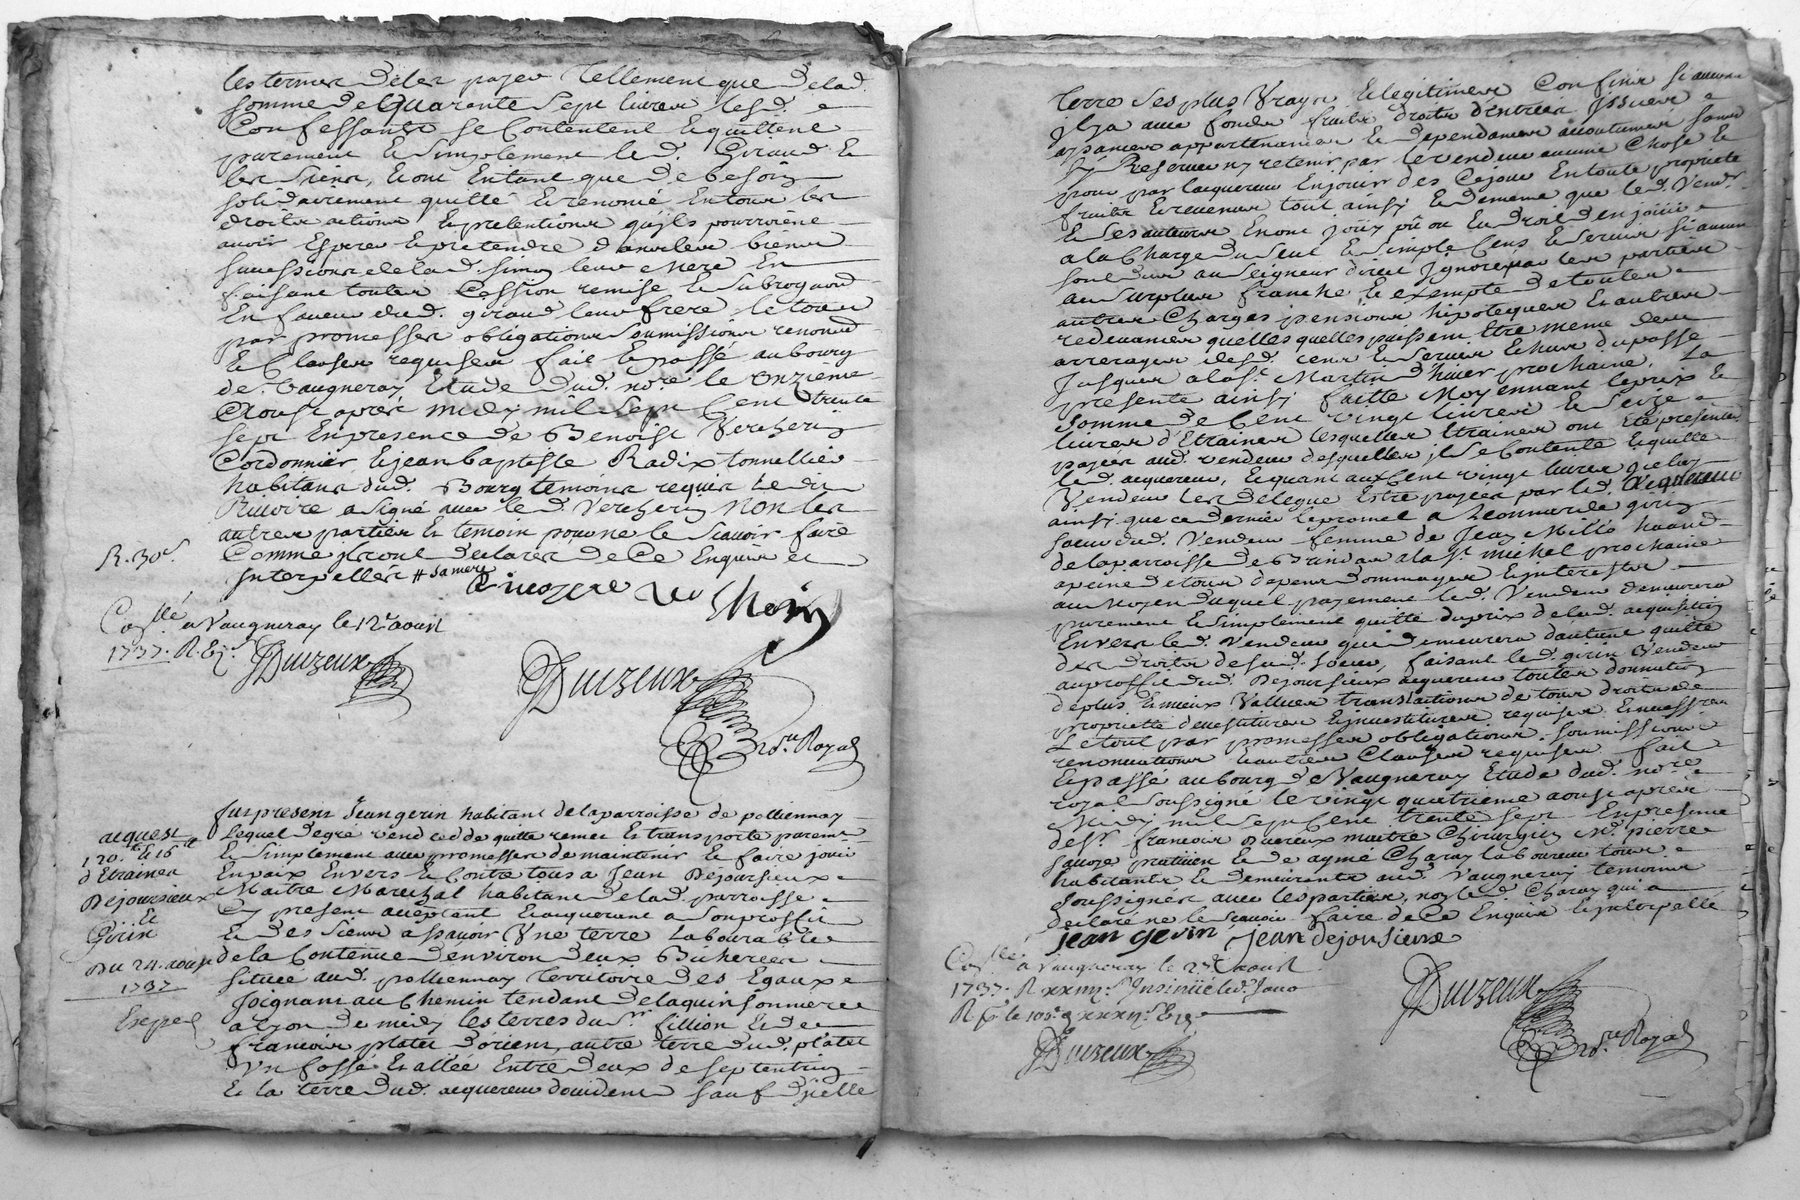 les termes de les payer tellement que de lad.
somme de Quarante sept livres lesd.
Confessants se Contentent et quittent
purement et simplement led. Giraud et
les siens, et ont Entant que de besoin
solidairement quitté et renoncé En tous les
droits actions et pretentions qu'ils pourroient
avoir Esperer et pretendre dans les biens
successions de lad. leur mere En
faisant toutes Cession remise et subrogaon
En faveur dud. giraud leur frere le tout
par promesses obligations soumissions renond.
et Clauses requises fait et passé au bourg
de Vaugneray Etude dud. nore le Onzieme
Aoust aprés midy mil sept Cent trente
sept En presence de Benoist Vercherin
Cordonnier et jean baptiste Radix tonnellier
habitans dud. Bourg temoins requis led.
Rivoire a signé avec led. Vercherin non les
autres parties et temoin pour ne le scavoir faire
Comme ils ont declarés de Ce Enquis et
Interpellés # sa mere
R. 30s.
Conllé a Vaugneray le 12e aoust
1737. R.
Duizeux
Duizeux
no.re Royal
fut present Jean gerin habitant de la parroisse de polliennay
Lequel de gré vend cedde quitte remet et transporte purement
et simplement avec promesses de maintenir et faire jouir
En paix Envers et Contre tous a Jean Dejoursieux
Maitre Marechal habitant de lad. parroisse
Cy present acceptant et acquerant a son proffit
et des siens a sçavoir Une terre Labourable
de la Contenue denviron deux Bicherees
située aud. polliennay territoire des Egaux
Joignant au Chemin tendant de
a Lyon de midy les terres du Sr. fillion et de
francois platet d'orient, autre terre dud. platet
Un fossé et allée Entre deux de septentrion
et la terre dud. acquereur d'occident sauf d'icelle
acquest
120.lt et 16lt
d'Etraines
Dejoursieux
Et
Gerin
Du 24. aoust
1737
Exepед
terre ses plus Vrays et legitimes Confins si aucuns
il y a avec fonds fruits droits d'entrées Issues
aysances appartenances et dependances accoutumées sans
sy Reserver ny retenir par le vendeur aucune Chose et
pour par l'acquereur En jouir des Ce jour En toute proprieté
fruits et revenus tout ainsi et de meme que led. Vendr.
et ses auteurs En ont joüy pû ou Eu droit d'en joüir
a la Charge du seul et simple Cens et servis si aucun
sont dus au seigneur direct Ignoré par les parties
au surplus franche et exempte de toutes
autres Charges pensions hipoteques et autres
redevances quelles quelles puissent Etre meme des
arrerages desd. cens et servis Echus du passé
Jusques a la St. Martin d'hiver prochaine. La
presente ainsi faitte Moyennant le prix et
somme de Cent vingt livres et seize
livres d'Etraines lesquelles Etraines ont Eté presentemt
payées aud. vendeur desquelles il se Contente et quitte
led. acquereur, et quant aux Cent vingt livres led.
Vendeur les delegue Estre payées par led. acquereur
ainsi que ce dernier le promet a Leonnarde girin
soeur dud. Vendeur femme de Jean Millo
de la parroisse de Brindas a la St. michel prochaine
a peine de tous depens dommages et interests
au moyen duquel payement led. Vendeur demeurera
purement et simplement quitte du prix de lad. acquisition
Envers led. Vendeur qui demeurera dautant quitte
des droits de sad. soeur, faisant led. girin Vendeur
au proffit dud. Dejoursieux acquereur toutes donnation
de plus et mieux Value translations de tous droits de
proprieté devestitures et investitures requises et necessres
Le tout par promesses obligations soumissions
renonciations et autres Clauses requises fait
et passé au bourg de Vaugneray Etude dud. nore
royal soussigné le vingt quatrieme aoust aprés
Midy mil sept Cent trente sept En presence
de Sr. francois maitre Chirurgien Me. pierre
praticien et de ayme Charay laboureur tous
habitants et demeurants aud. Vaugneray temoins
soussignés avec les parties, non led. Charay qui a
declaré ne le scavoir faire de Ce Enquis et interpellé
jean gerin jean dejoursieux
Conllé a Vaugneray le 27e aoust
1737. R xxiiijs. Insinüé led. Jour
Duizeux
Duizeux
no.re Royal